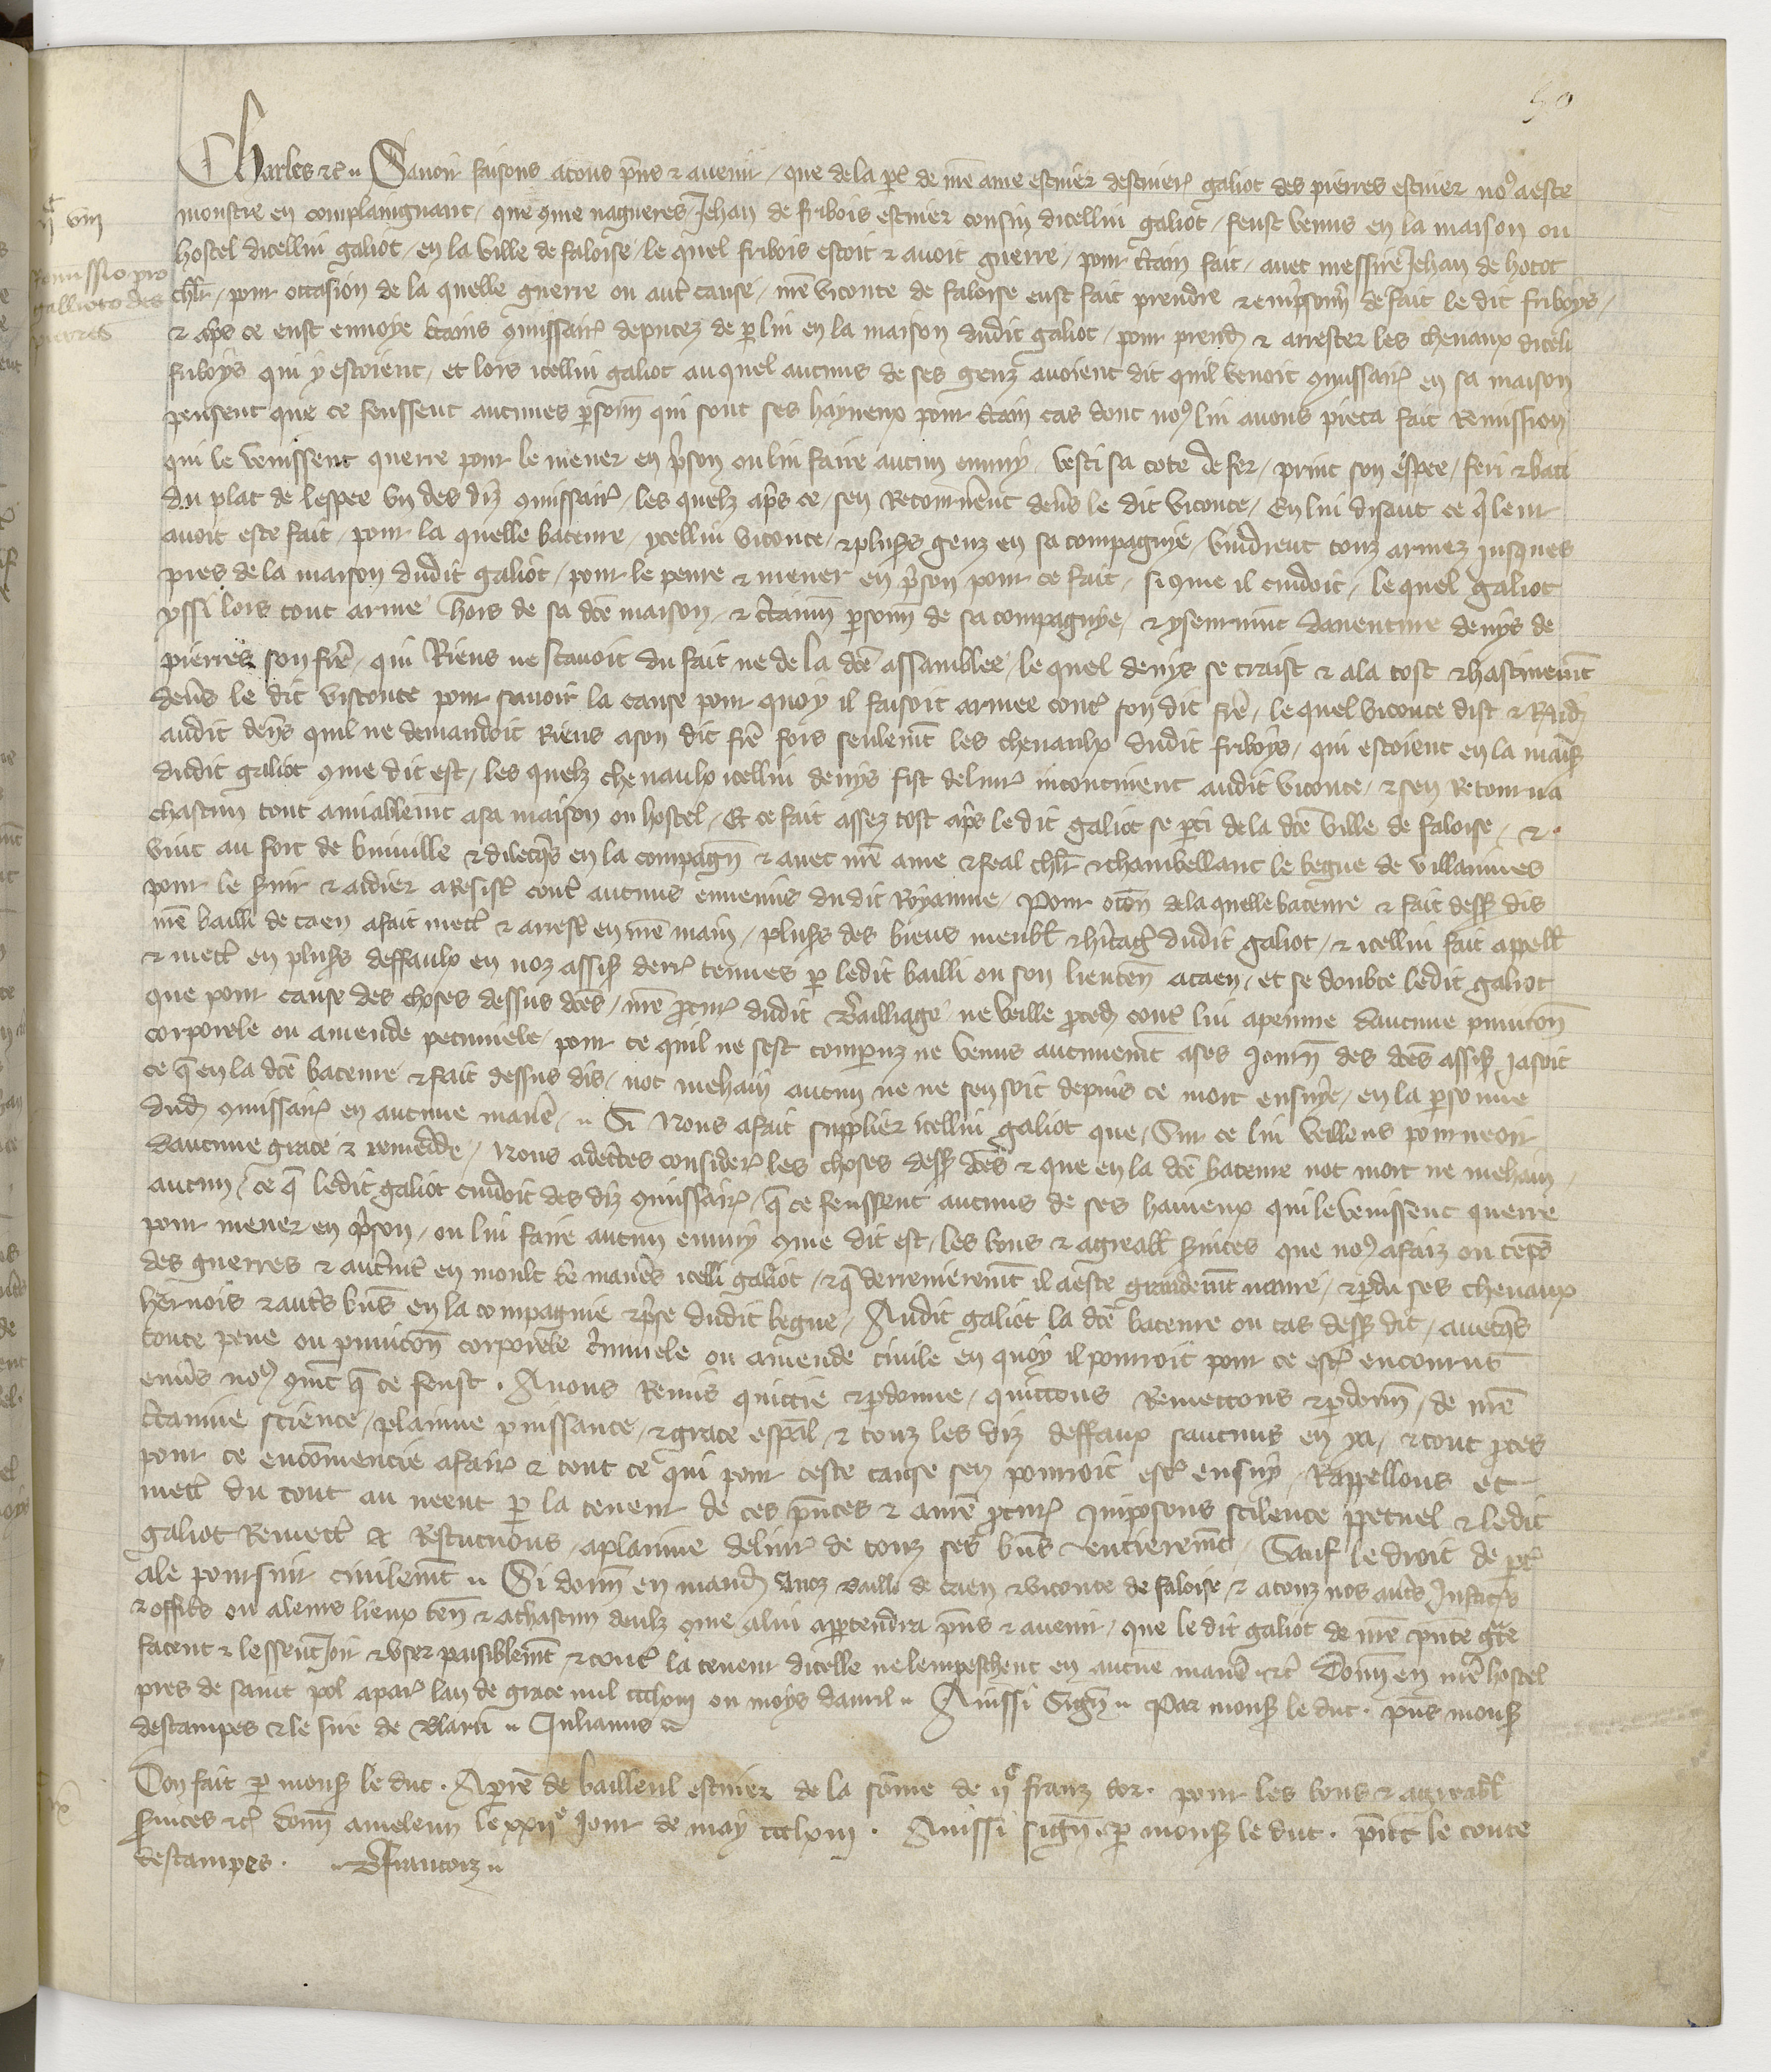 50
Charles etc. Savoir faisons a tous pns et avenir / que de la pt de nre ame escuier descuierie galiot des pierres escuier nos a este
monstre en complaingnant / que come nagueres Jehan de fribois escuier cousin dicellui galiot / feust venus en la maison ou
IIc VIII
hostel dicellui galiot / en la ville de faloise / le quel fribois estoit et avoit guerre / pour ctain fait / avec messire Jehan de hotot
Remissio pro
gallioto des
pierres
chlr / pour occasion de la quelle guerre ou autre cause / nre viconte de faloise eust fait prendre et emprisonner de fait le dit friboys /
et aps ce eust envoye ctains comissairs deputez de p lui en la maison dudit galiot / pour prendr et arrester les chevaux diceli
friboys qui y estoient / et lors icellui galiot auquel aucuns de ses genz avoient dit quil venoit comissairs en sa maison
pensent que ce feussent aucunes psonnes qui sont ses hayneux pour ctain cas dont nos lui avons pieca fait Remission
qui le venissent querre pour le mener en prison ou lui faire aucun ennuy / vesti sa cote de fer / print son espee / feri et bati
du plat de lespee un des diz comissairs / les quelz aps ce / sen Retournerent devs le dit viconte / En lui disant ce que leur
avoit este fait / pour la quelle bateure / ycellui viconte / et plusrs genz en sa compagnie / vindrent touz armez jusques
pres de la maison dudit galiot / pour le penre et mener en prison pour ce fait / si come il cuidoit / le quel galiot
yssi lors tout arme hors de sa dce maison / et ctaines psonnes de sa compagnye / et y seurvint daventure denys de
pierres son frere / qui Riens ne scavoit du fait ne de la dce assamblee / le quel denys se traist et ala tost et hastivemt
devs le dit visconte pour savoir la cause pour quoy il faisoit armee contre son dit frere / le quel viconte dist et Respondi
audit denys quil ne demandoit Riens a son dit frere fors seulemt les chevaulx dudit friboys / qui estoient en la maison
dudit galiot come dit est / les quelz chevaulx icellui denys fist delivrer incontinent audit viconte / et sen Retourna
chascun tout amiablemt a sa maison ou hostel / Et ce fait assez tost aps le dit galiot se pti de la dce ville de faloise / et
vint au fort de et dilecqs en la compagn et avec nre ame et feal chlr et chambellanc le begue de villannes
pour le svir et aidier a Resistr contre aucuns ennemis du dit Royaume / Pour ocon de la quelle bateure et fait dessus dis
nre bailli de caen a fait mettre et arrester en nre main / plusrs des biens meubles et heritages dudit galiot / et icellui fait appeller
et mettre en plusrs deffaulx en noz assises derr tenues p le dit bailli ou son lieuten a caen / et se doubte ledit galiot
que pour cause des choses dessus dces / nre pcur dudit Bailliage ne veille pceder contre lui a peinne daucune punicon
corporele ou amende pecuniele / pour ce quil ne sest comparuz ne venus aucunemt a ses Journ des dces assises Jasoit
ce que en la dce bateure et fait dessus dis / not mehain aucun ne ne sen soit depuis ce mort ensuye / en la psonne
dud comissairs en aucune manie / Si Nous a fait supplier icellui galiot que / Sur ce lui veillens pourveoir
daucune grace et remedde / Nous adectes considers les choses dessus dces et que en la dce bateure not mort ne mehain /
aucun / ce que ledit galiot cuidoit des diz comissairs / que ce feussent aucuns de ses haineux qui le venissent querre
pour mener en prison / ou lui faire aucun ennuy come dit est / les bons et agreabl services que nos a faiz ou temps
des guerres et autremt en moult de manies icelli galiot / et que derrenierement il a este grandemt navre / et pdu ses chevaux
hernois et autrs biens en la compagnie et prise dudit begue / Audit galiot la dce bateure ou cas dessus dit / avecqs
toute pene ou punicon corporele criminele ou amende civile en quoy il pourroit pour ce estre encourus
envs nos / comt que ce feust . Avons Remis quittie et pdonne / quittons Remettons et pdonnons / de nre
ctainne science / plainne puissance / et grace espal / et touz les diz deffaux saucuns en ya / et tout pces
pour ce encommencie a fairs et tout ce qui pour ceste cause sen pourroit estre ensuy / Rappellons et
mettons du tout au neent p la teneur de ces pntes et a nre pcur imposons scilence ppetuel et ledit
galiot Remettons et Restituons / a plainne delivrs de touz ses biens entieremt / Sauf le droit de ptie
a le poursuir civilemt Si donnons en mandt a noz bailli de caen et viconte de faloise / et a touz nos autrs Justics
et offics ou a leurs lieux ten et a chascun deulx come a lui appartendra pns et avenir / que le dit galiot de nre pnte grace
facent et lessent Joir et user paisiblemt / et contre la teneur dicelle ne lempeschent en aucune manie etc Donne en nre hostel
pres de saint pol a pars lan de grace mil ccclxiii ou moys davril Ainssi Signe Par mons le duc . pns mons
destampes et le sire de Blaru Julianus
Don fait p mons le duc . A prre de bailleul escuier de la some de IIc franz dor . pour les bons et agreabl
services etc donn a meleun le xxiie jour de may ccclxiii . Ainssi signe . p mons le duc . pnt le conte
destampes . Francoiz